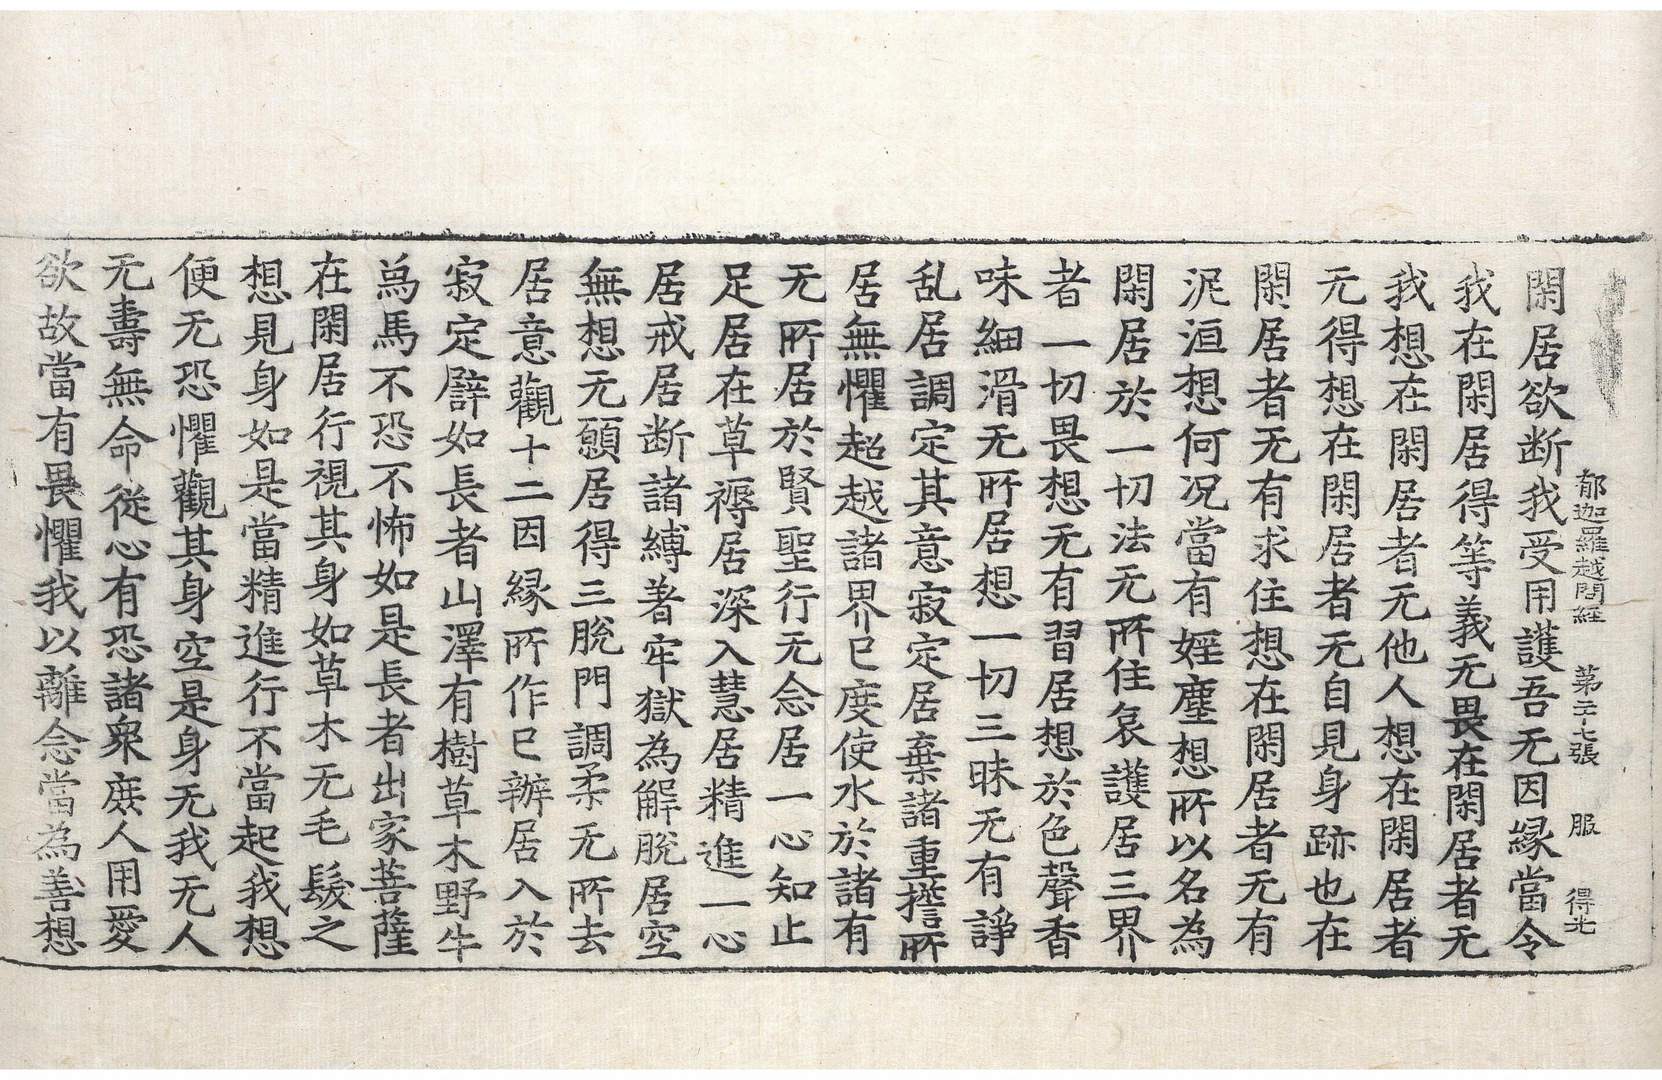 郁迦羅越問經 第二十七張 服 得光
閑居欲断我受用護吾无因縁當令
我在閑居得等義无畏在閑居者无
我想在閑居者无他人想在閑居者
无得想在閑居者无自見身跡也在
閑居者无有求住想在閑居者无有
泥洹想何况當有婬塵想所以名為
閑居於一切法无所住㐮護居三界
者一切畏想无有習居想於色聲香
味細滑无所居想一切三昧无有諍
乱居調定其意寂定居棄諸重擔所
居無懼超越諸界已度使水於諸有
无所居於賢聖行无念居一心知止
足居在草蓐居深入慧居精進一心
居戒居断諸縛著牢獄為解脫居空
無想无願居得三脫門調柔无所去
居意觀十二因縁所作已辦居入於
寂定辟如長者山澤有樹草木野牛
為馬不恐不怖如是長者出家菩薩
在閑居行視其身如草木无毛髮之
想見身如是當精進行不當起我想
便无恐懼觀其身空是身无我无人
无壽無命從心有恐諸衆庶人用愛
欲故當有畏懼我以離念當為善想